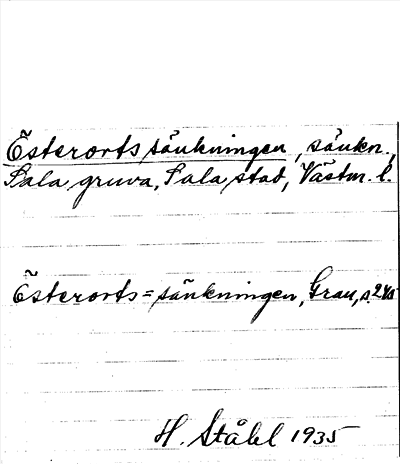 Österortssänkningen, sänkn.,
Sala gruva, Sala stad, Västm. l.
Österorts=sänkningen, Gran, s.
H. Ståhl 1935